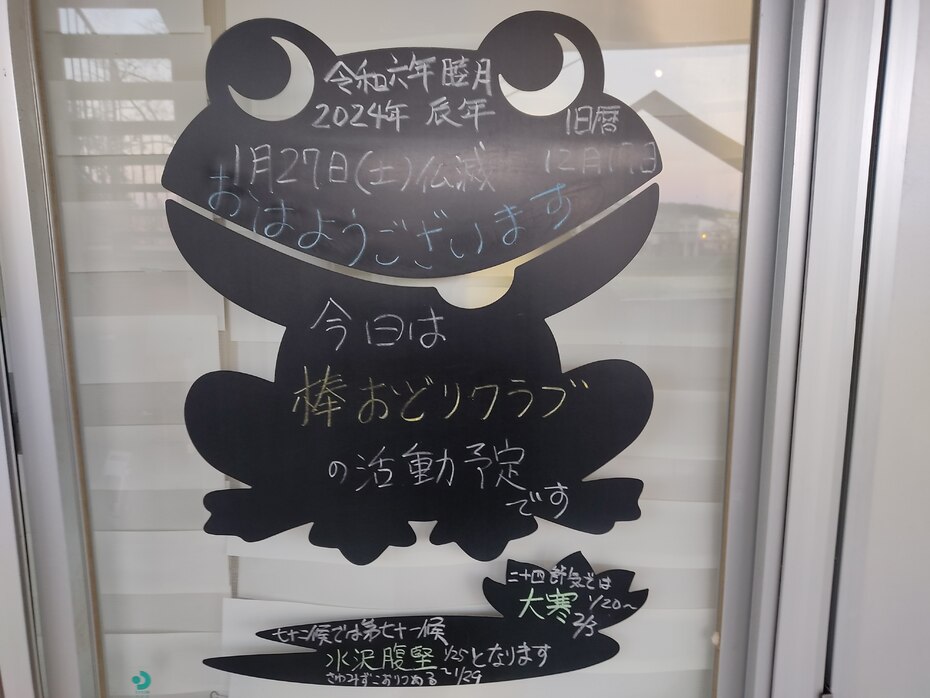 令和六年 睦月
2024年 辰年
旧暦
1月27日(土)仏滅 12月17日
おはようございます
今日は
棒おどりクラブ
の活動予定
です
二十四節気では
大寒 1/20〜
2/3
七十二候では第七十一候
水沢腹堅 1/25〜1/29となります
さわみずこおりつめる